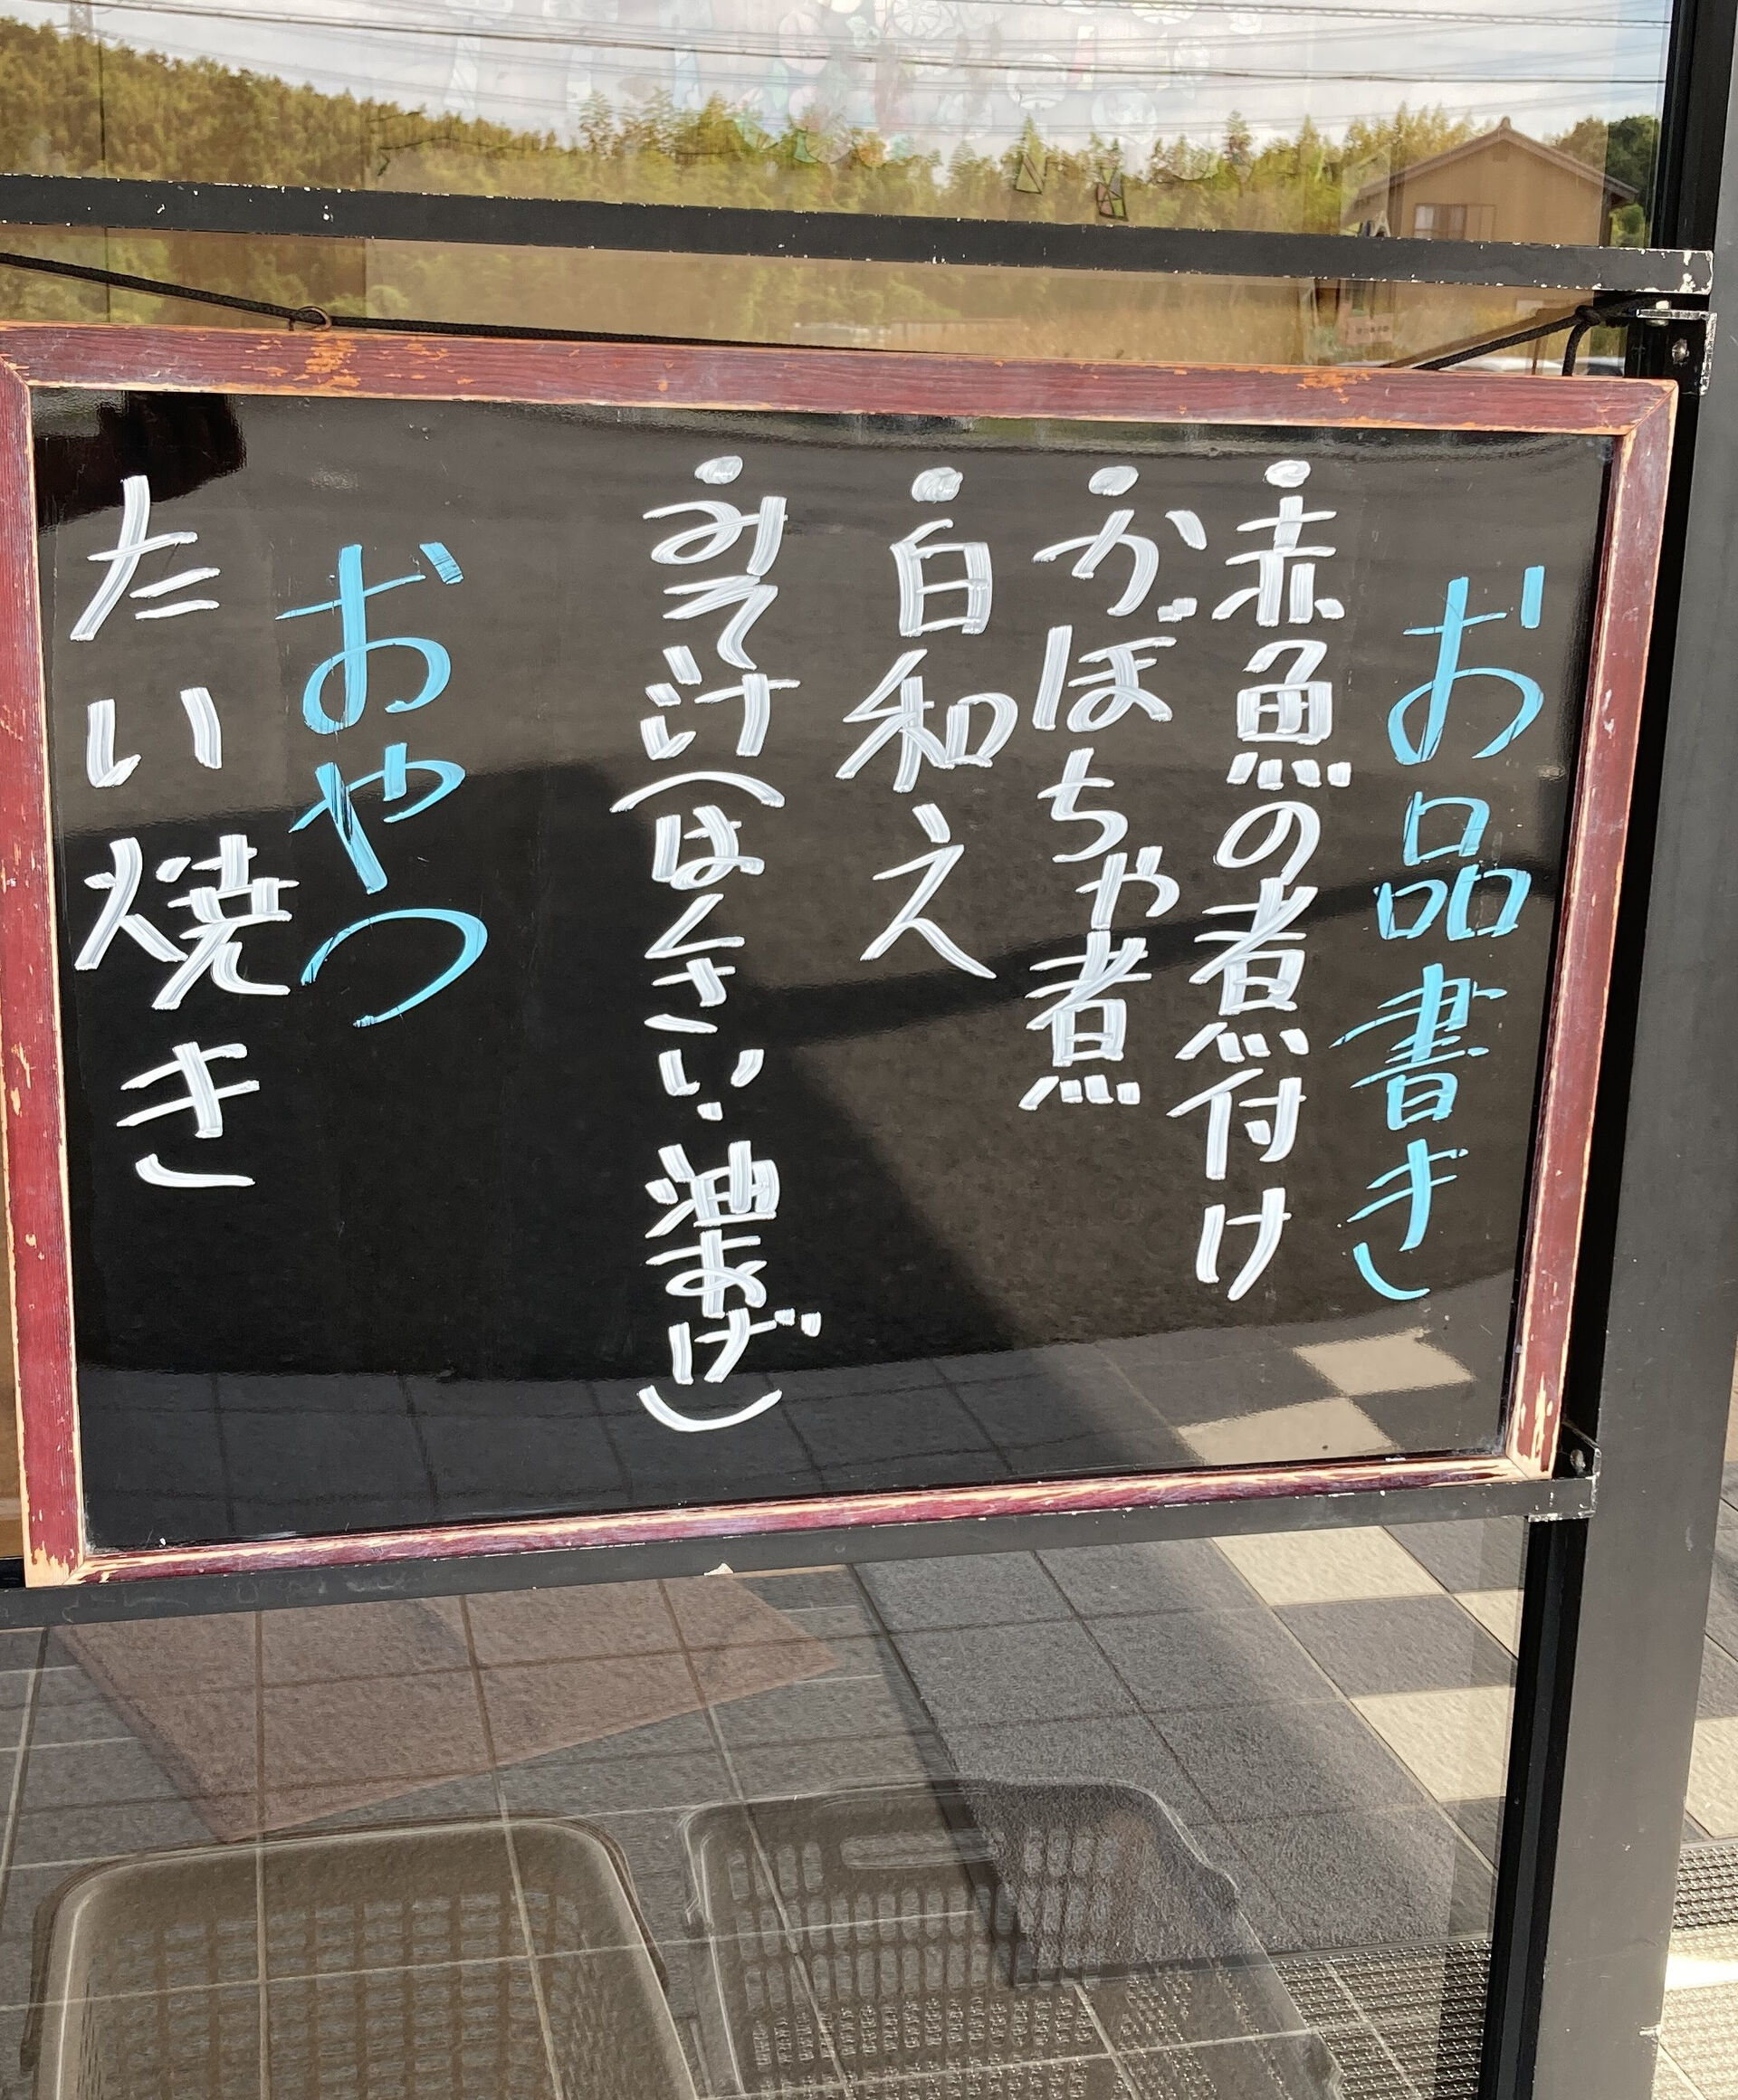 お品書き
・赤魚の煮付け
・かぼちゃ煮
・白和え
・みそ汁(はくさい・油あげ)
おやつ
たい焼き